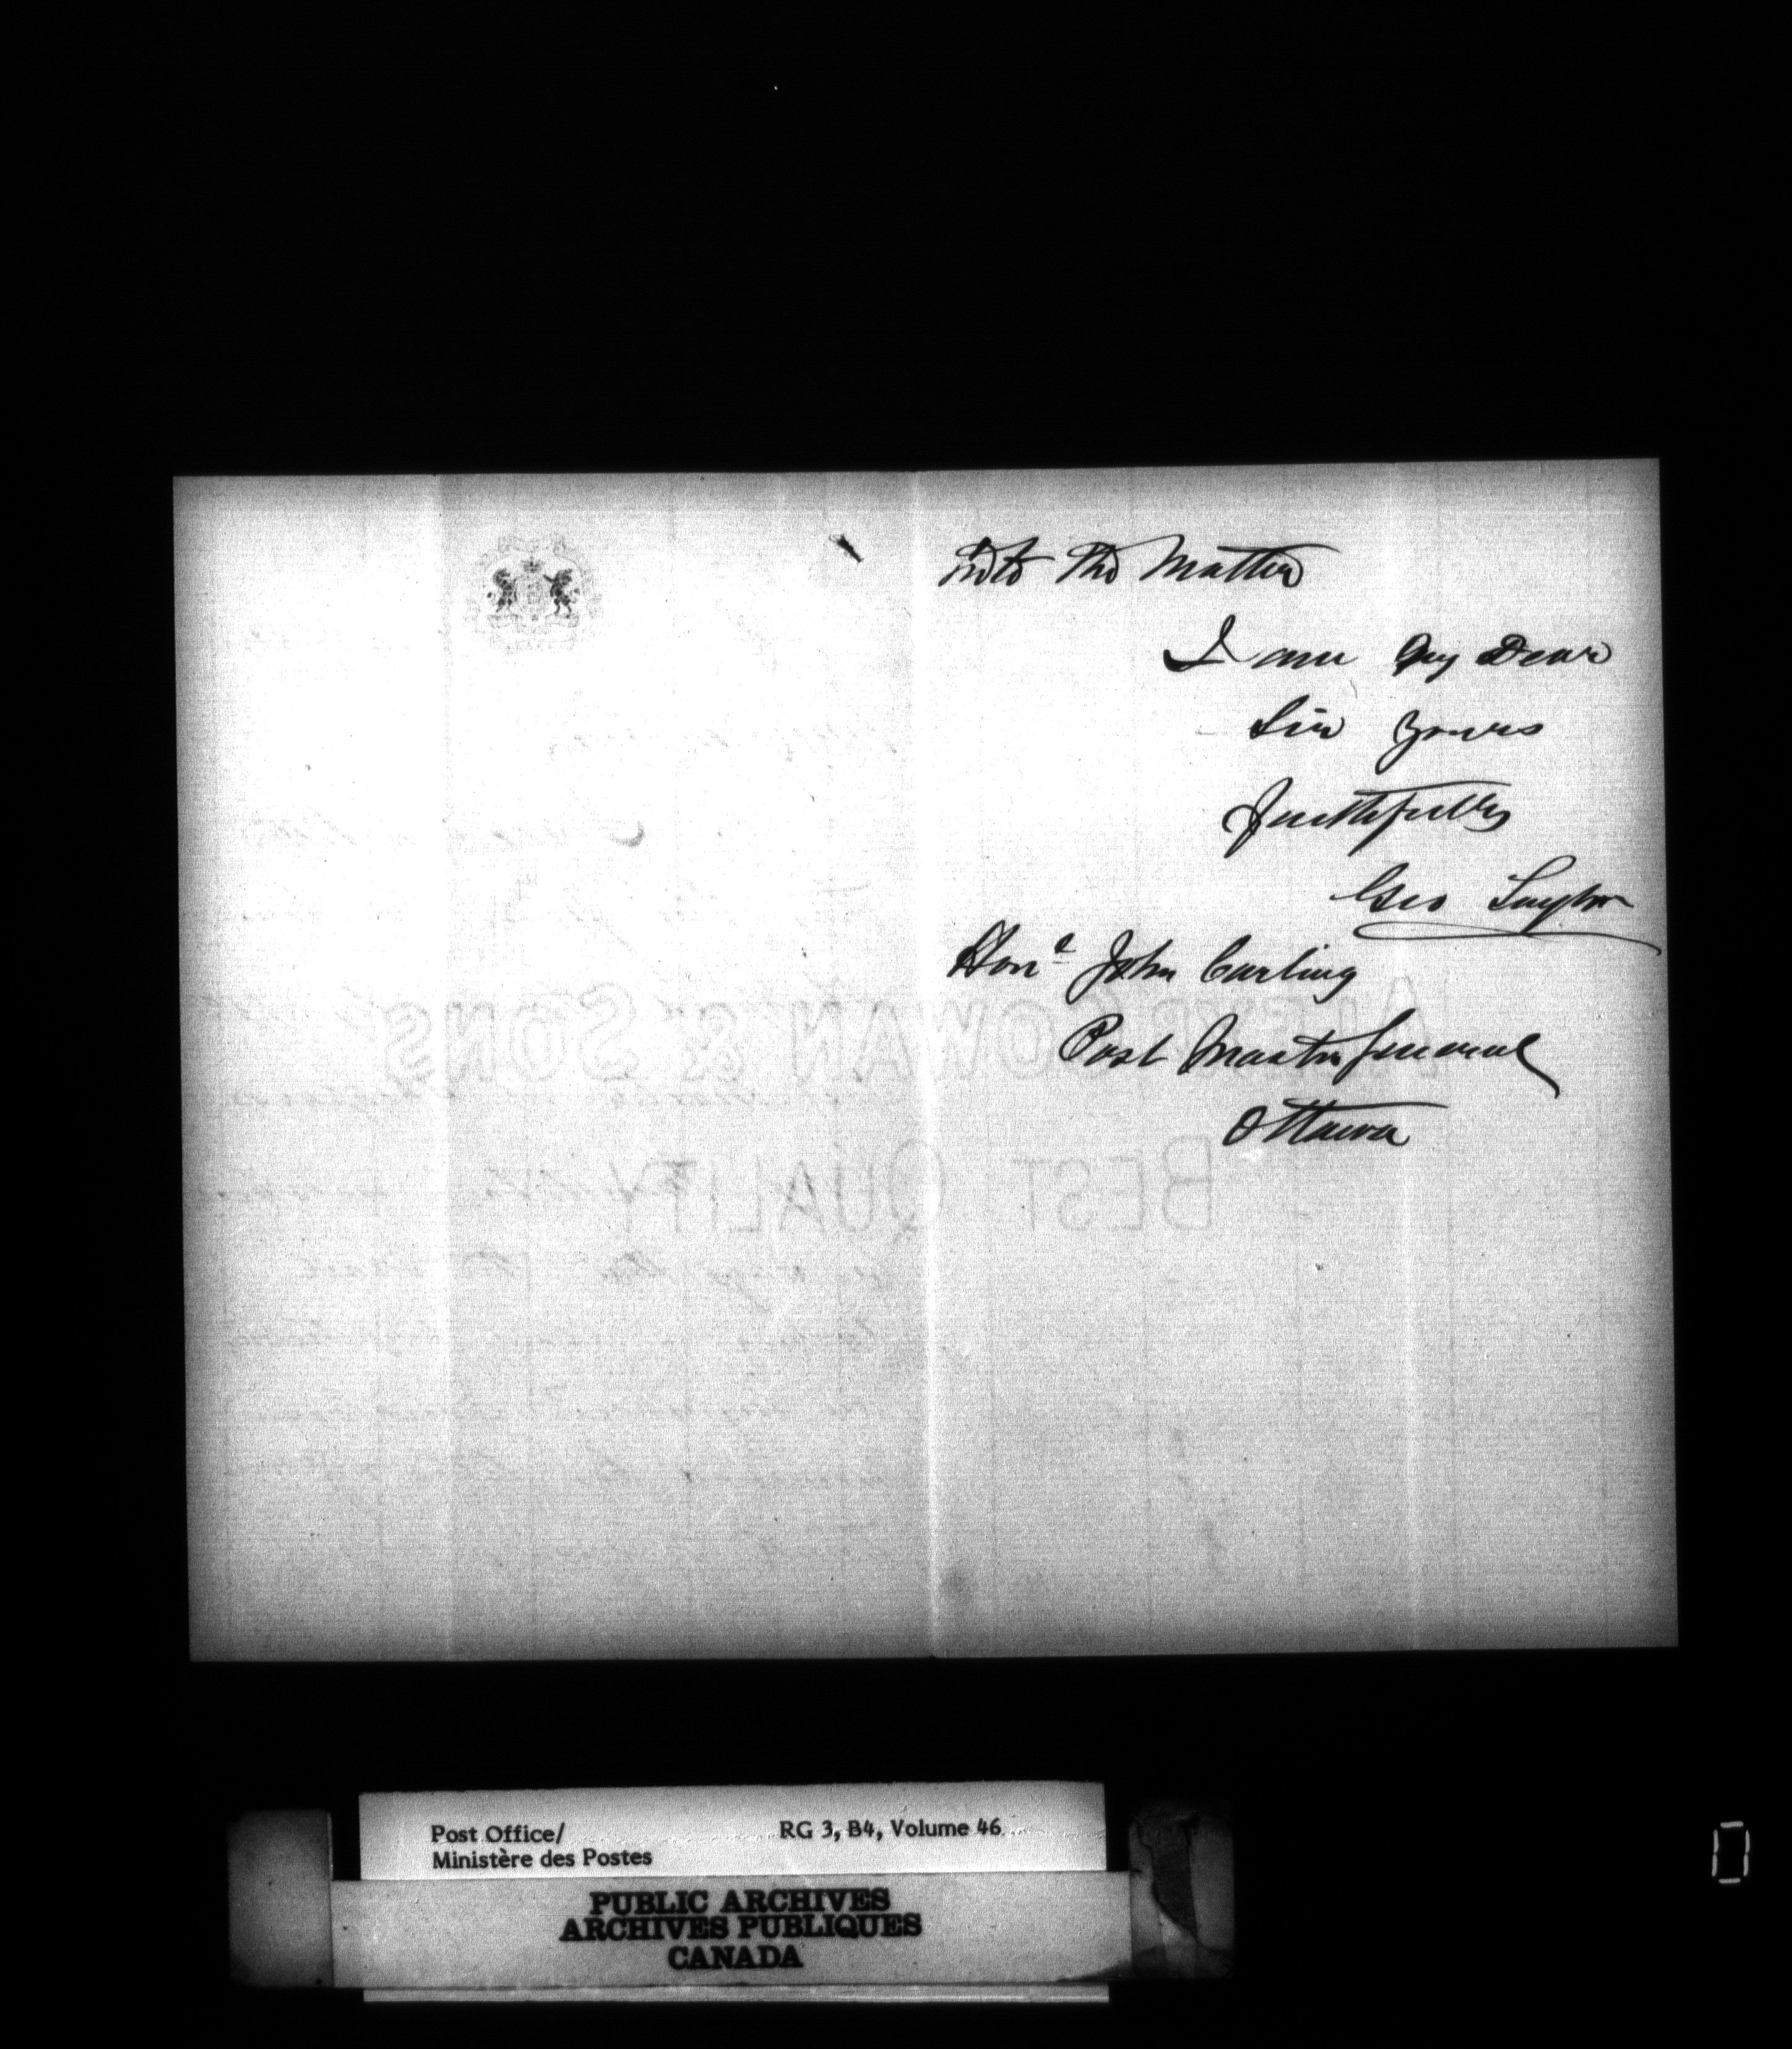 into the Matter
I am My Dear
Sir Yours
faithfully
Geo Taylor
Hon^e John Carling
Post Master General
Ottawa
ALEXR COWAN & SONS
BEST QUALITY
Post Office/ RG 3, B4, Volume 46
Ministère des Postes
PUBLIC ARCHIVES
ARCHIVES PUBLIQUES
CANADA